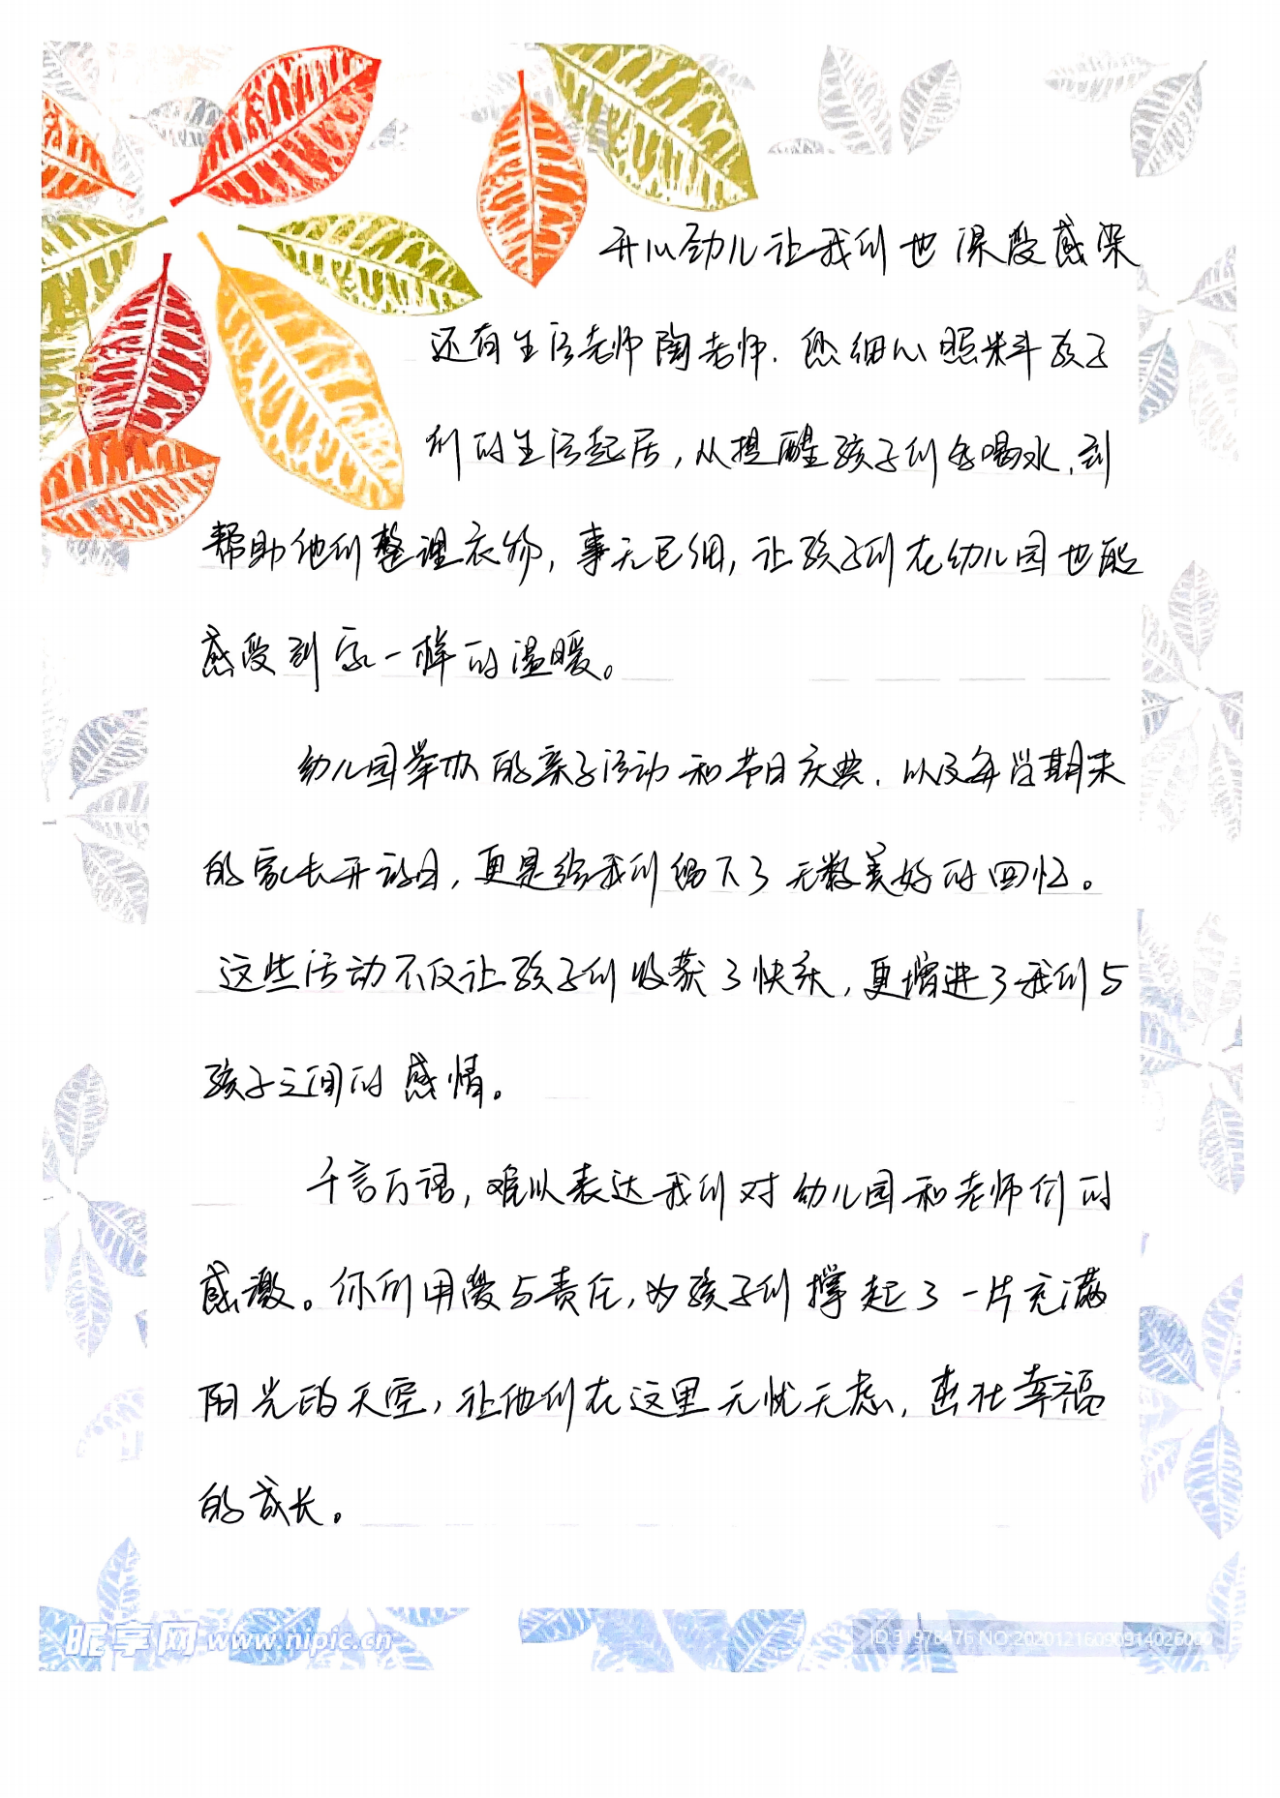 开心幼儿让我们也深受感染
还有生活老师陶老师.您细心照料孩子
们的生活起居,从提醒孩子们多喝水,到
帮助他们整理衣物,事无巨细,让孩子们在幼儿园也能
感受到家一样的温暖。
幼儿园举办的亲子活动和节日庆典,以及每学期末
的家长开放日,更是给我们留下了无数美好的回忆。
这些活动不仅让孩子们收获了快乐,更增进了我们与
孩子之间的感情。
千言万语,难以表达我们对幼儿园和老师们的
感激。你们用爱与责任,为孩子们撑起了一片充满
阳光的天空,让他们在这里无忧无虑,茁壮幸福
的成长。
昵享网 www.nipic.cn
ID:31978476 NO:20201216090914026000